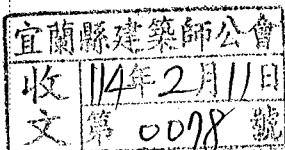 宜蘭縣建築師公會
收文
114年2月11日
第 0078 號